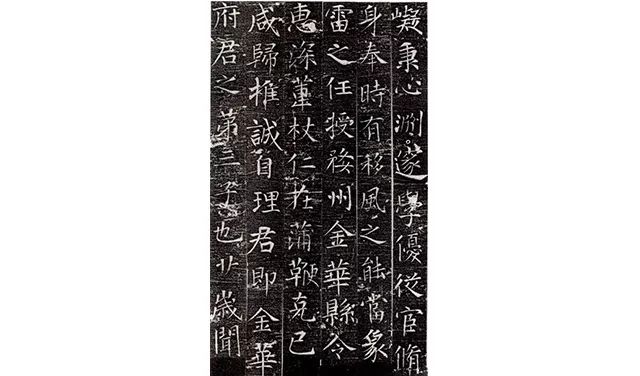 嶷秉心渕邃學優従官脩
身奉時有移風之能當象
雷之任授婺州金華縣令
惠深葦杖仁在蒲鞭克己
咸歸推誠自理君即金華
府君之第三子也廿歲聞